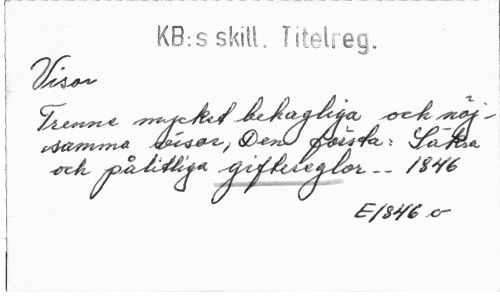 KB:s skill. Titelreg.
Visor
Trenne mycket behagliga och nöj-
samma visor, Den första: Säkra
och pålitliga giftereglor -- 1846
E/1846 o